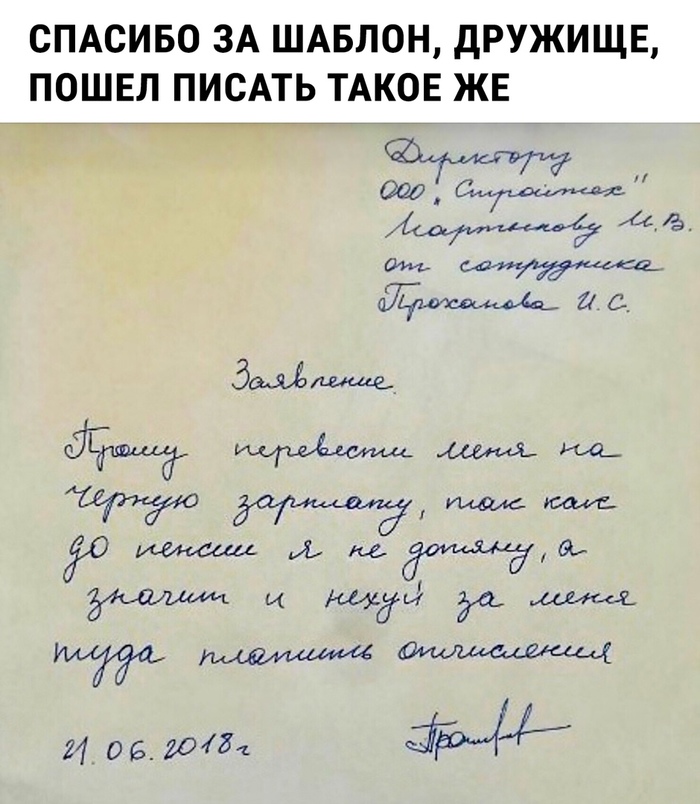 СПАСИБО ЗА ШАБЛОН, ДРУЖИЩЕ,
ПОШЕЛ ПИСАТЬ ТАКОЕ ЖЕ
Директору
ООО „Стройтех"
Мартынову И.В.
от сотрудника
Проханова И.С.
Заявление.
Прошу перевести меня на
черную зарплату, так как
до пенсии я не дотяну, а
значит и нехуй за меня
туда платить отчисления
21.06.2018г